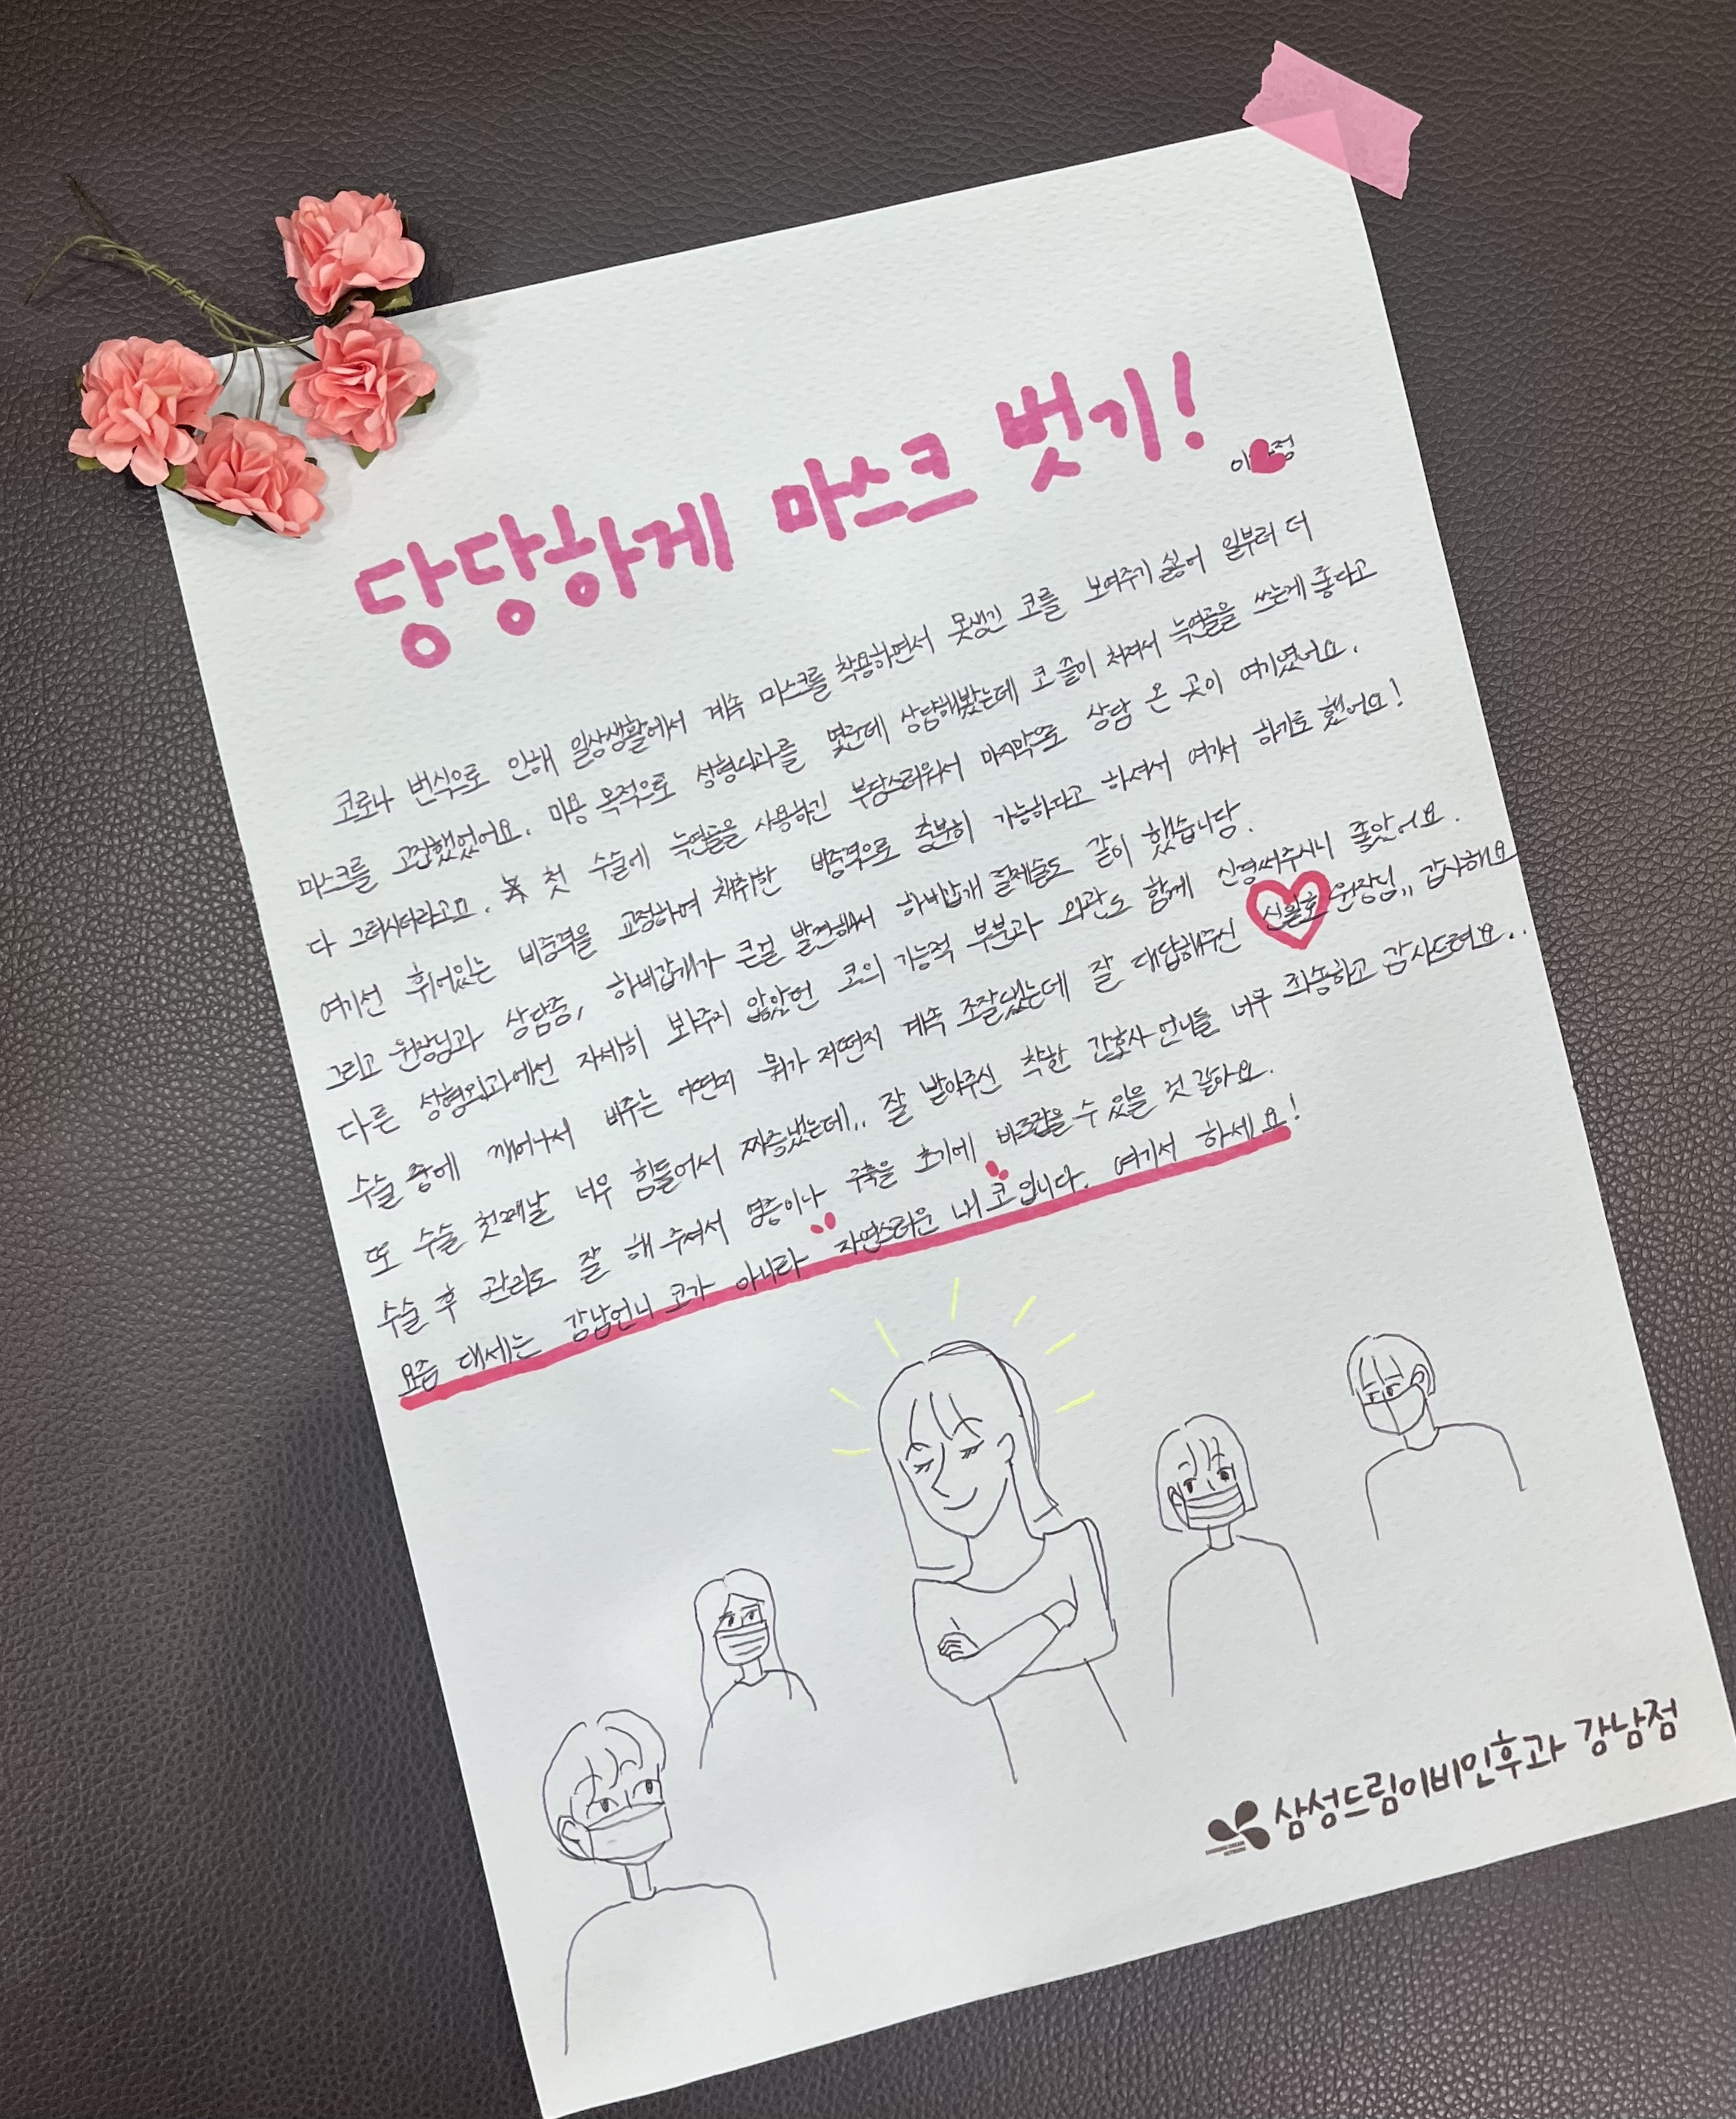 당당하게 마스크 벗기!
이 정
코로나 번식으로 인해 일상생활에서 계속 마스크를 착용하면서 못생긴 코를 보여주기 싫어 일부러 더
마스크를 고집했었어요. 미용 목적으로 성형외과를 몇군데 상담해봤는데 코 끝이 처져서 늑연골을 쓰는게 좋다고
다 그러시더라고요. 첫 수술에 늑연골을 사용하긴 부담스러워서 마지막으로 상담 온 곳이 여기였어요.
여기선 휘어있는 비중격을 교정하여 채취한 비중격으로 충분히 가능하다고 하셔서 여기서 하기로 했어요!
그리고 원장님과 상담중, 하비갑개가 큰걸 발견해서 하비갑개 절제술도 같이 했습니담.
다른 성형외과에선 자세히 봐주지 않았던 코의 기능적 부분과 외관도 함께 신경써주시니 좋았어요.
수술 중에 깨어나서 배주는 어떤지 뭐가 저떤지 계속 조잘댔는데 잘 대답해주신 신일호 원장님,, 감사해요
또 수술 첫째날 너무 힘들어서 짜증냈는데,, 잘 받아주신 착한 간호사 언니들 너무 죄송하고 감사드려요..
수술 후 관리도 잘 해 주셔서 염증이나 구축을 초기에 바로잡을 수 있을 것 같아요.
요즘 대세는 강남언니 코가 아니라 자연스러운 내 코입니다. 여기서 하세요!
삼성드림이비인후과 강남점